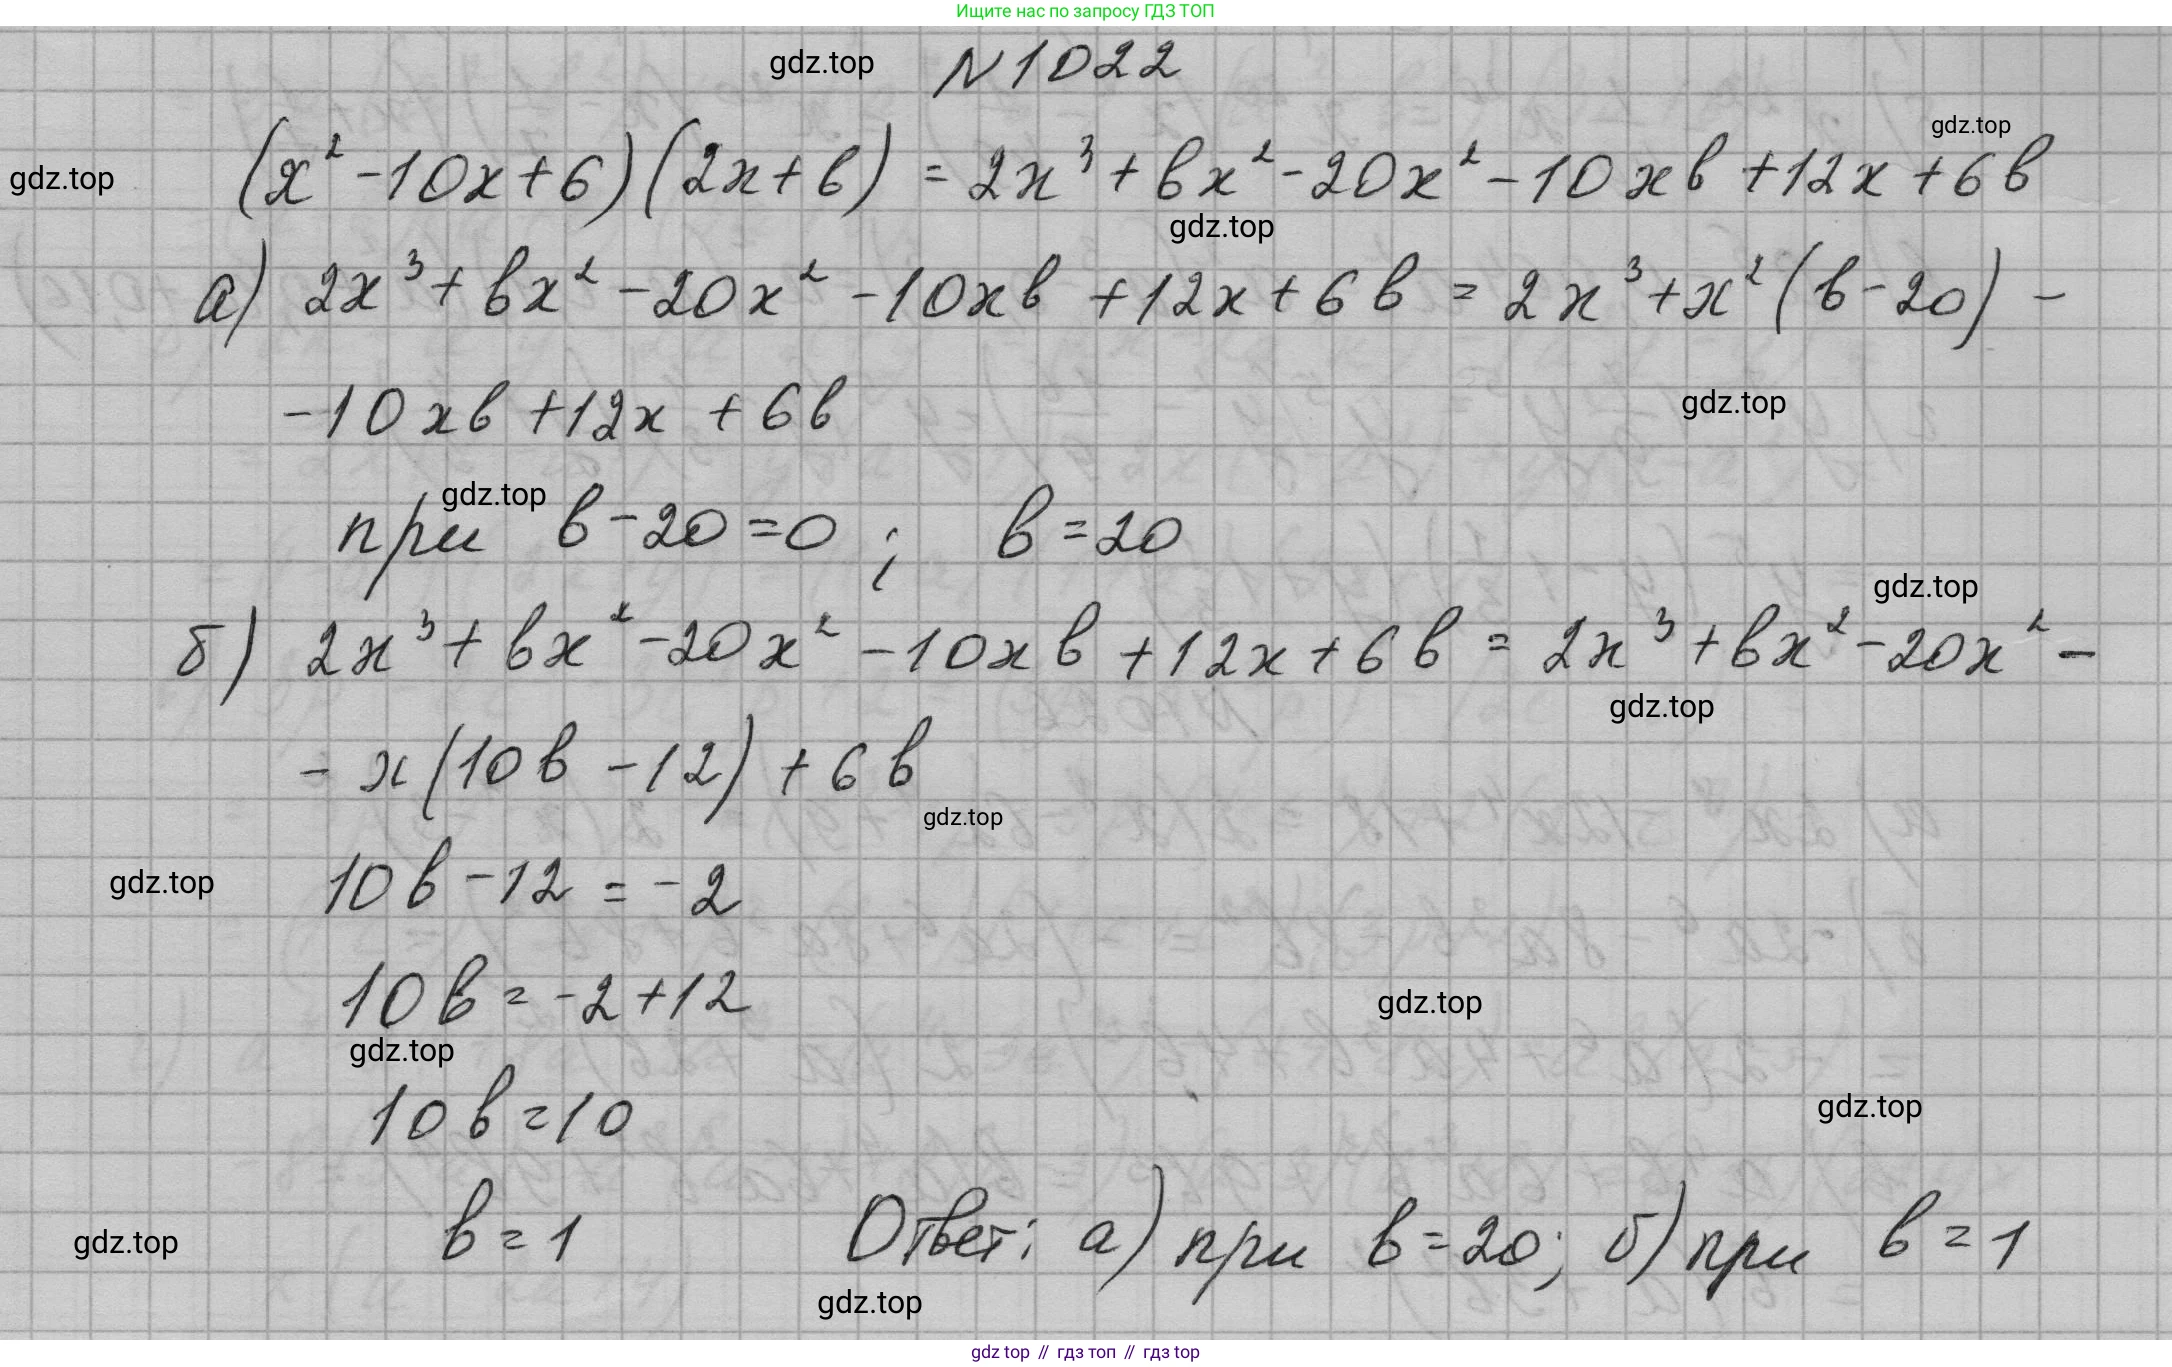 Ищите нас по запросу ГДЗ ТОП
gdz.top
N 1022
gdz.top
gdz.top
(x² - 10x + 6)(2x + b) = 2x³ + bx² - 20x² - 10xb + 12x + 6b
gdz.top
а) 2x³ + bx² - 20x² - 10xb + 12x + 6b = 2x³ + x²(b - 20) -
- 10xb + 12x + 6b
gdz.top
gdz.top
при b - 20 = 0 ; b = 20
gdz.top
б) 2x³ + bx² - 20x² - 10xb + 12x + 6b = 2x³ + bx² - 20x² -
gdz.top
- x(10b - 12) + 6b
gdz.top
gdz.top
10b - 12 = -2
10b = -2 + 12
gdz.top
gdz.top
10b = 10
gdz.top
gdz.top
b = 1 Ответ: а) при b = 20; б) при b = 1
gdz.top
gdz top // гдз топ // гдз top